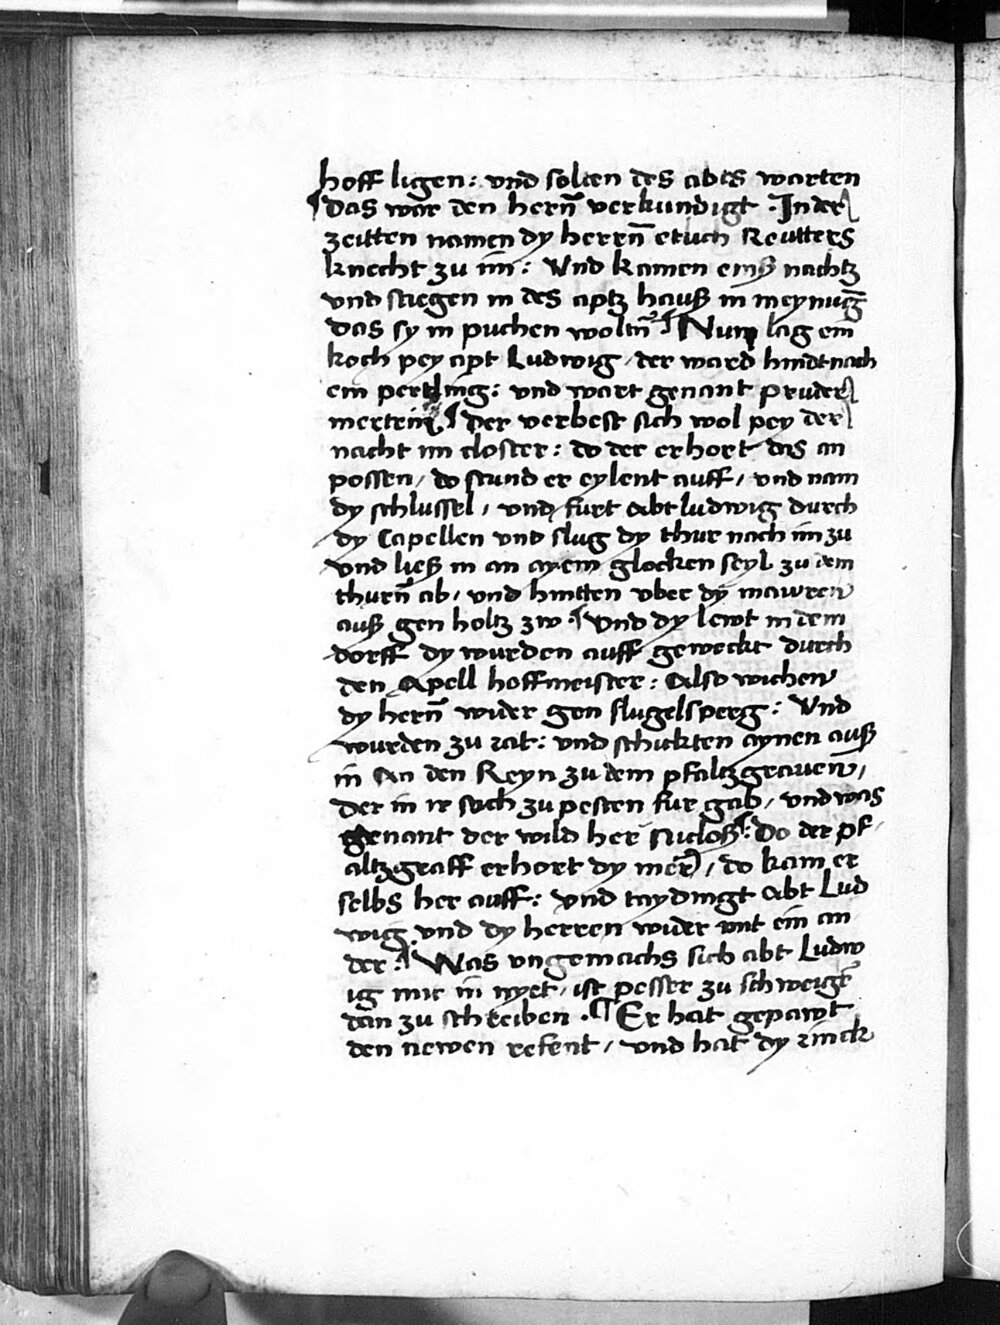 hoff ligen: vnd solten des abts warten
¶ das war den hern̄ verkundigt. In der
zeitten namen dy herrn̄ etlich Reutters
knecht zu im: Vnd kamen einß nachtz
vnd stiegen in des aptz hauß in meynūg
das sy in puchen woltn̄ ¶ Nun lag ein
koch pey apt Ludwig, der ward hindtnach
ein pertling: vnd wart genant pruder
mertein ¶ der verbest sich wol pey der
nacht im closter: do der erhort das an
possen, do stund er eylent auff, vnd nam
dy schlussel, vnd furt abt ludwig durch
dy Capellen vnd slug dy thur nach im zu
vnd ließ in an aynem glocken seyl zu dem
thurn̄ ab, vnd hintten vber dy mawren
auß gen holtz zw ¶ Vnd dy lewt in dem
dorff dy wurden auff geweckt durch
den Apell hoffmeister: Also wichen
dy hern̄ wider gen flugelsperg: Vnd
wurden zu rat: vnd schickten aynen auß
in An den Reyn zu dem pfaltzgraven,
der in ir sach zu pesten fur gab, vnd was
genant der wild her Nicloß ¶: Do der pf,
altzgraff erhort dy mer, do kam er
selbs her auff: vnd taydingt abt Lud
wig vnd dy herren wider mit ein an
der: ¶ Was vngemachs sich abt Ludw
ig mit in nyet, ist pesser zu schweigē
dan zu schreiben. ¶ Er hat gepawt
den newen refent, vnd hat dy rinck